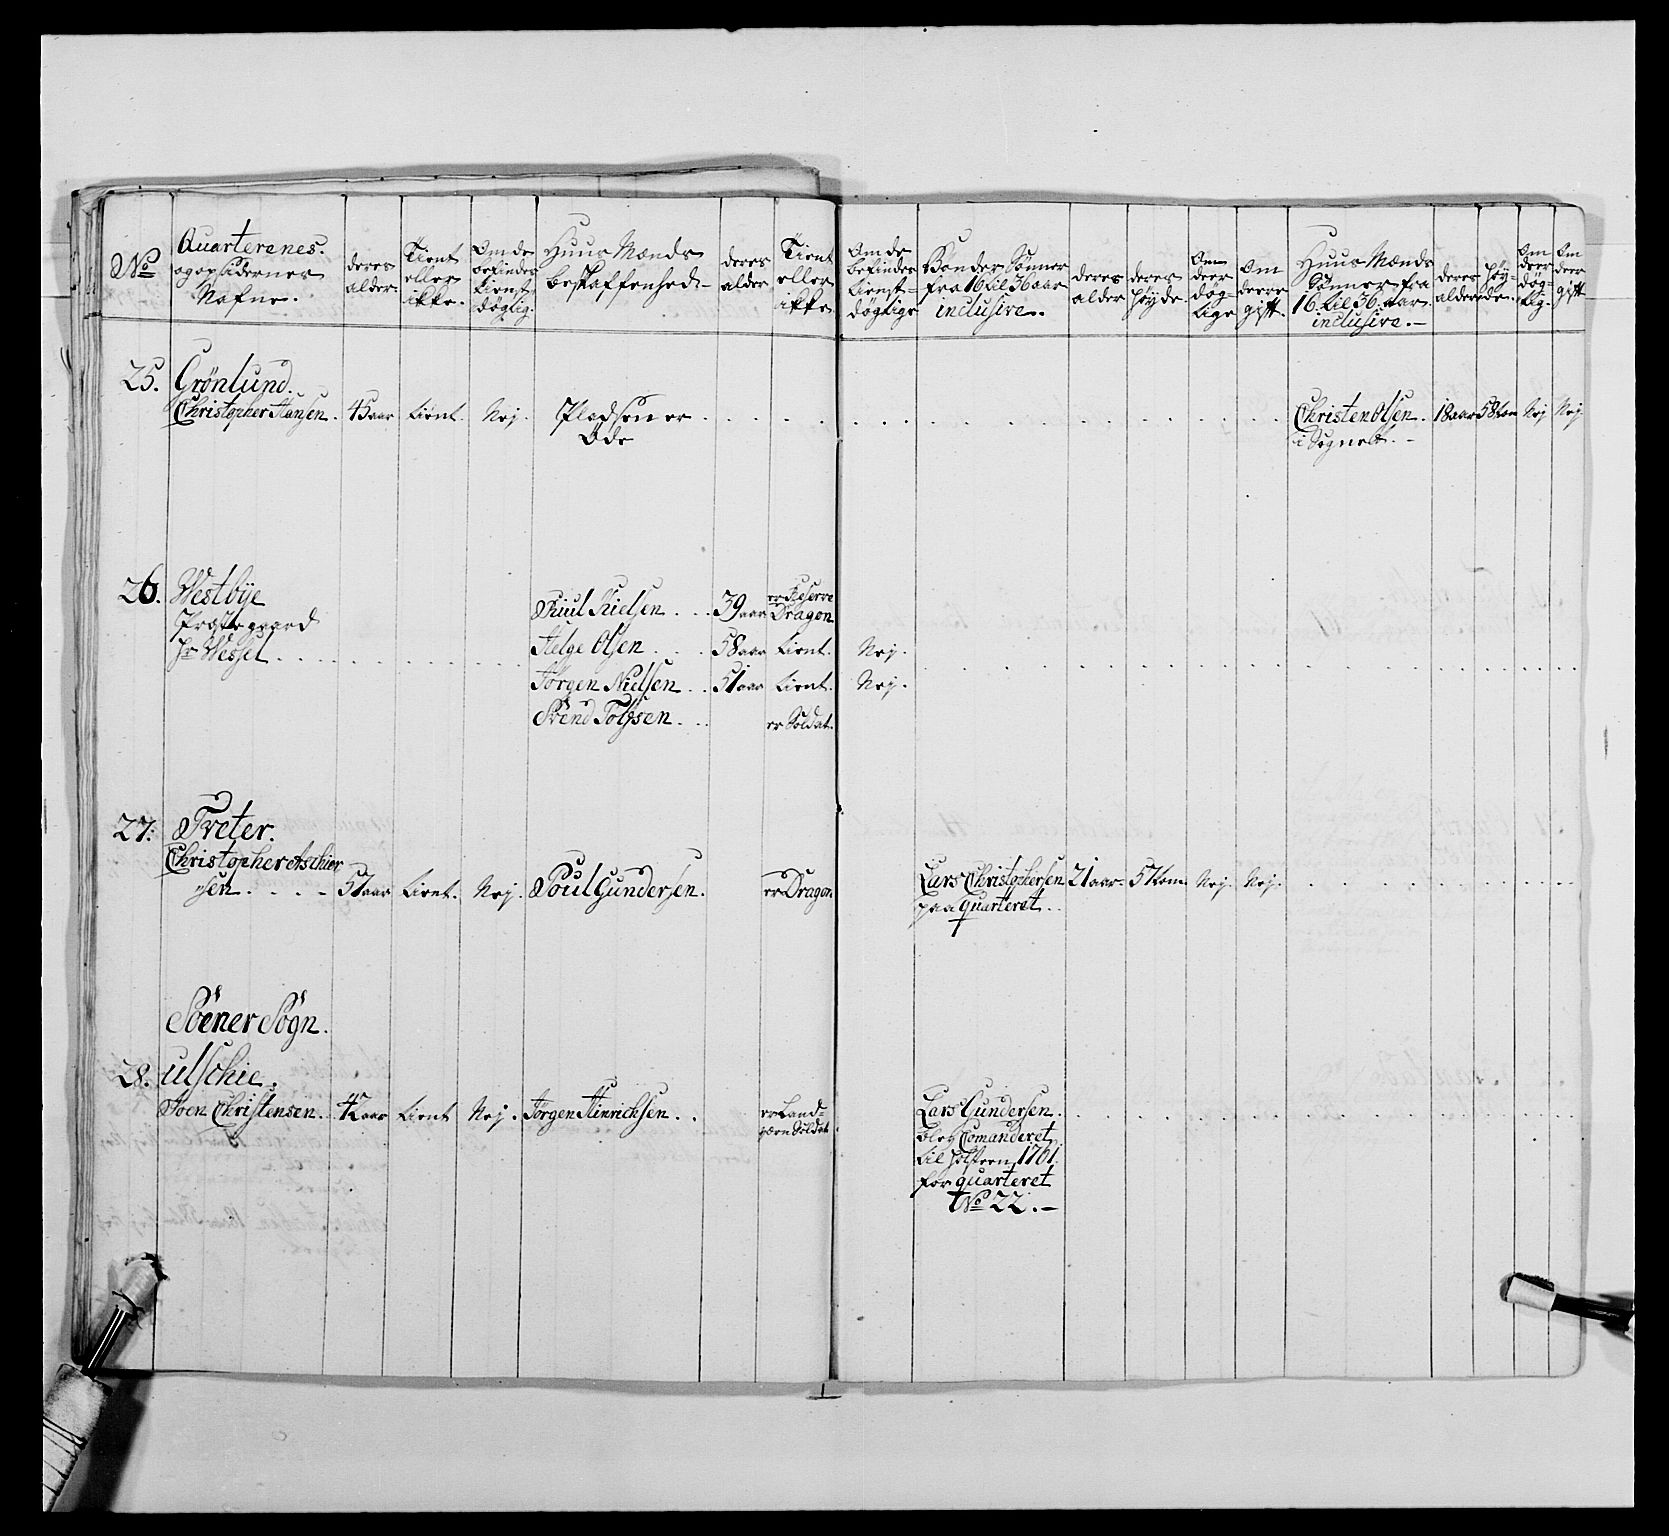 No
Quarterenes.
og opsiderner
Nafne.
deres
alder.
Tient
eller
ikke.
Om de
befindes
tienst
døgtig.
Huus Mænds
beskaffenhed
deres
alder
Tient
eller
ikke
Om de
befindes
tienst=
døgtige
Bønder Sønner
fra 16 til 36 aar
inclusive.
deres
alder
deres
høyde.
Om
deer
døg=
tige
Om
deere
gift.
Huus Mænds
Sønner fra
16 til 36 aar
inclusive.
deres
alder
høy
de.
Om
deer
døg=
tig.
Om
deer
gift
25. Grönlund.
Christopher Hansen. 45 aar tient. Nej. Pladsen er Christen Olsen. 18 aar 58 tom Nej Nej.
Øde i Sognet.
26. Westbÿe
Præstegaard
Hr Wessel
Juul Nielsen 39 aar er Reserve
Dragon
Helge Olsen 58 aar tient. Nej.
Jörgen Nielsen 51 aar tient. Nej.
Svend Tolfsen er Soldat.
27. Treter.
Christopher Aschier
sen 57 aar tient. Nej. Poul Gundersen. er Dragon Lars Christophersen 21 aar 57 tom Nej. Nej.
paa quarteret.
Söener Sögn.
28. Ulschie.
Joen Christensen 42 aar tient Nej. Jörgen Hinrichsen er Land=
værn Soldat
Lars Gundersen
blev Comanderet
til Holsteen 1761
for quarteret
No 22.